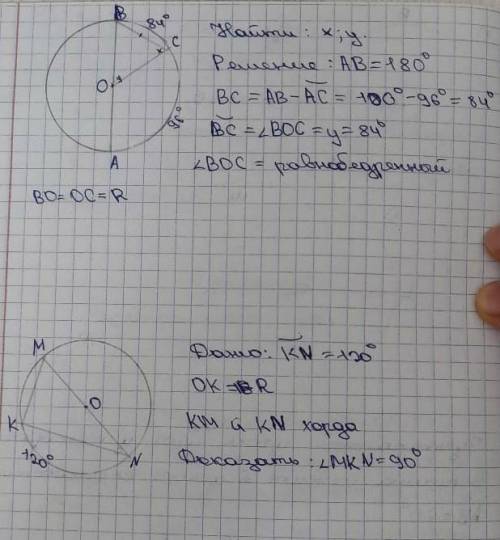 B
84°
C
x
O
y
96°
A
Найти: x; y.
Решение: AB=180°
BC = AB-AC = 180°-96° = 84°
BC = ∠BOC = y = 84°
∠BOC = равнобедренный
BO=OC=R
M
O
K
120°
N
Дано: KN = 120°
OK = R
KM и KN хорда
Доказать: ∠MKN=90°